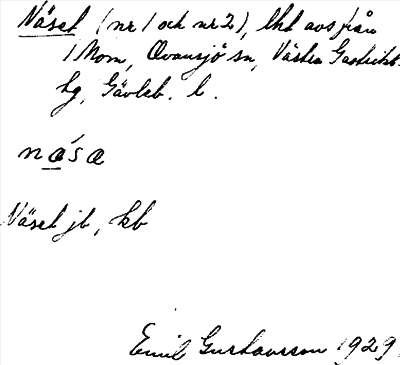 Näset (nr 1 och nr 2), lht avs från
1 Mom, Ovansjö sn, Västra Gästrikl.
hg, Gävleb. l.
näsa
Näset jb, kb
Emil Gustavsson 1929